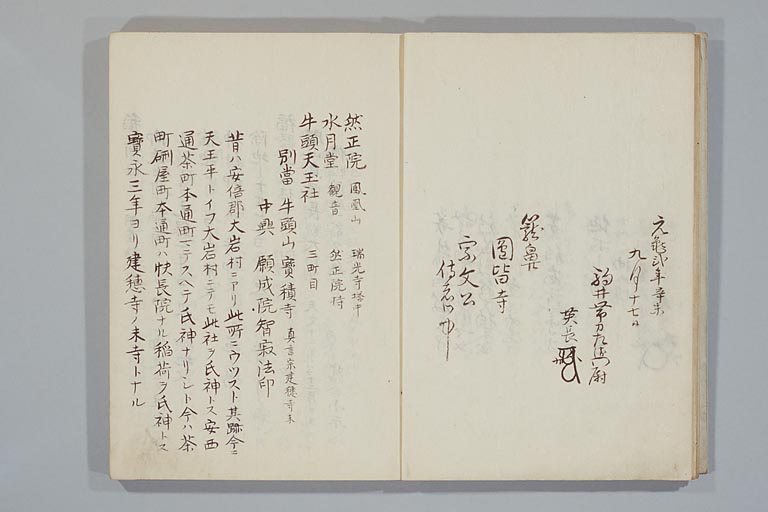 元亀弐年辛未
九月十七日
駒井帯刀左衛門尉
英長
籠鼻
圓皆寺
宗文公
然正院 鳳凰山 瑞光寺塔中
水月堂 観音 然正院持
牛頭天王社 三町目
別當 牛頭山寶積寺 真言宗建穂寺末
中興 願成院智寂法印
昔ハ安倍郡大岩村ニアリ此所ニウツスト其跡今ニ
天王平トイフ大岩村ニテモ此社ヲ氏神トス安西
通茶町本通町ニテスヘテ氏神ナリシト今ハ茶
町研屋町本通町ハ快長院ナル稲荷ヲ氏神トス
寶永三年ヨリ建穂寺ノ末寺トナル